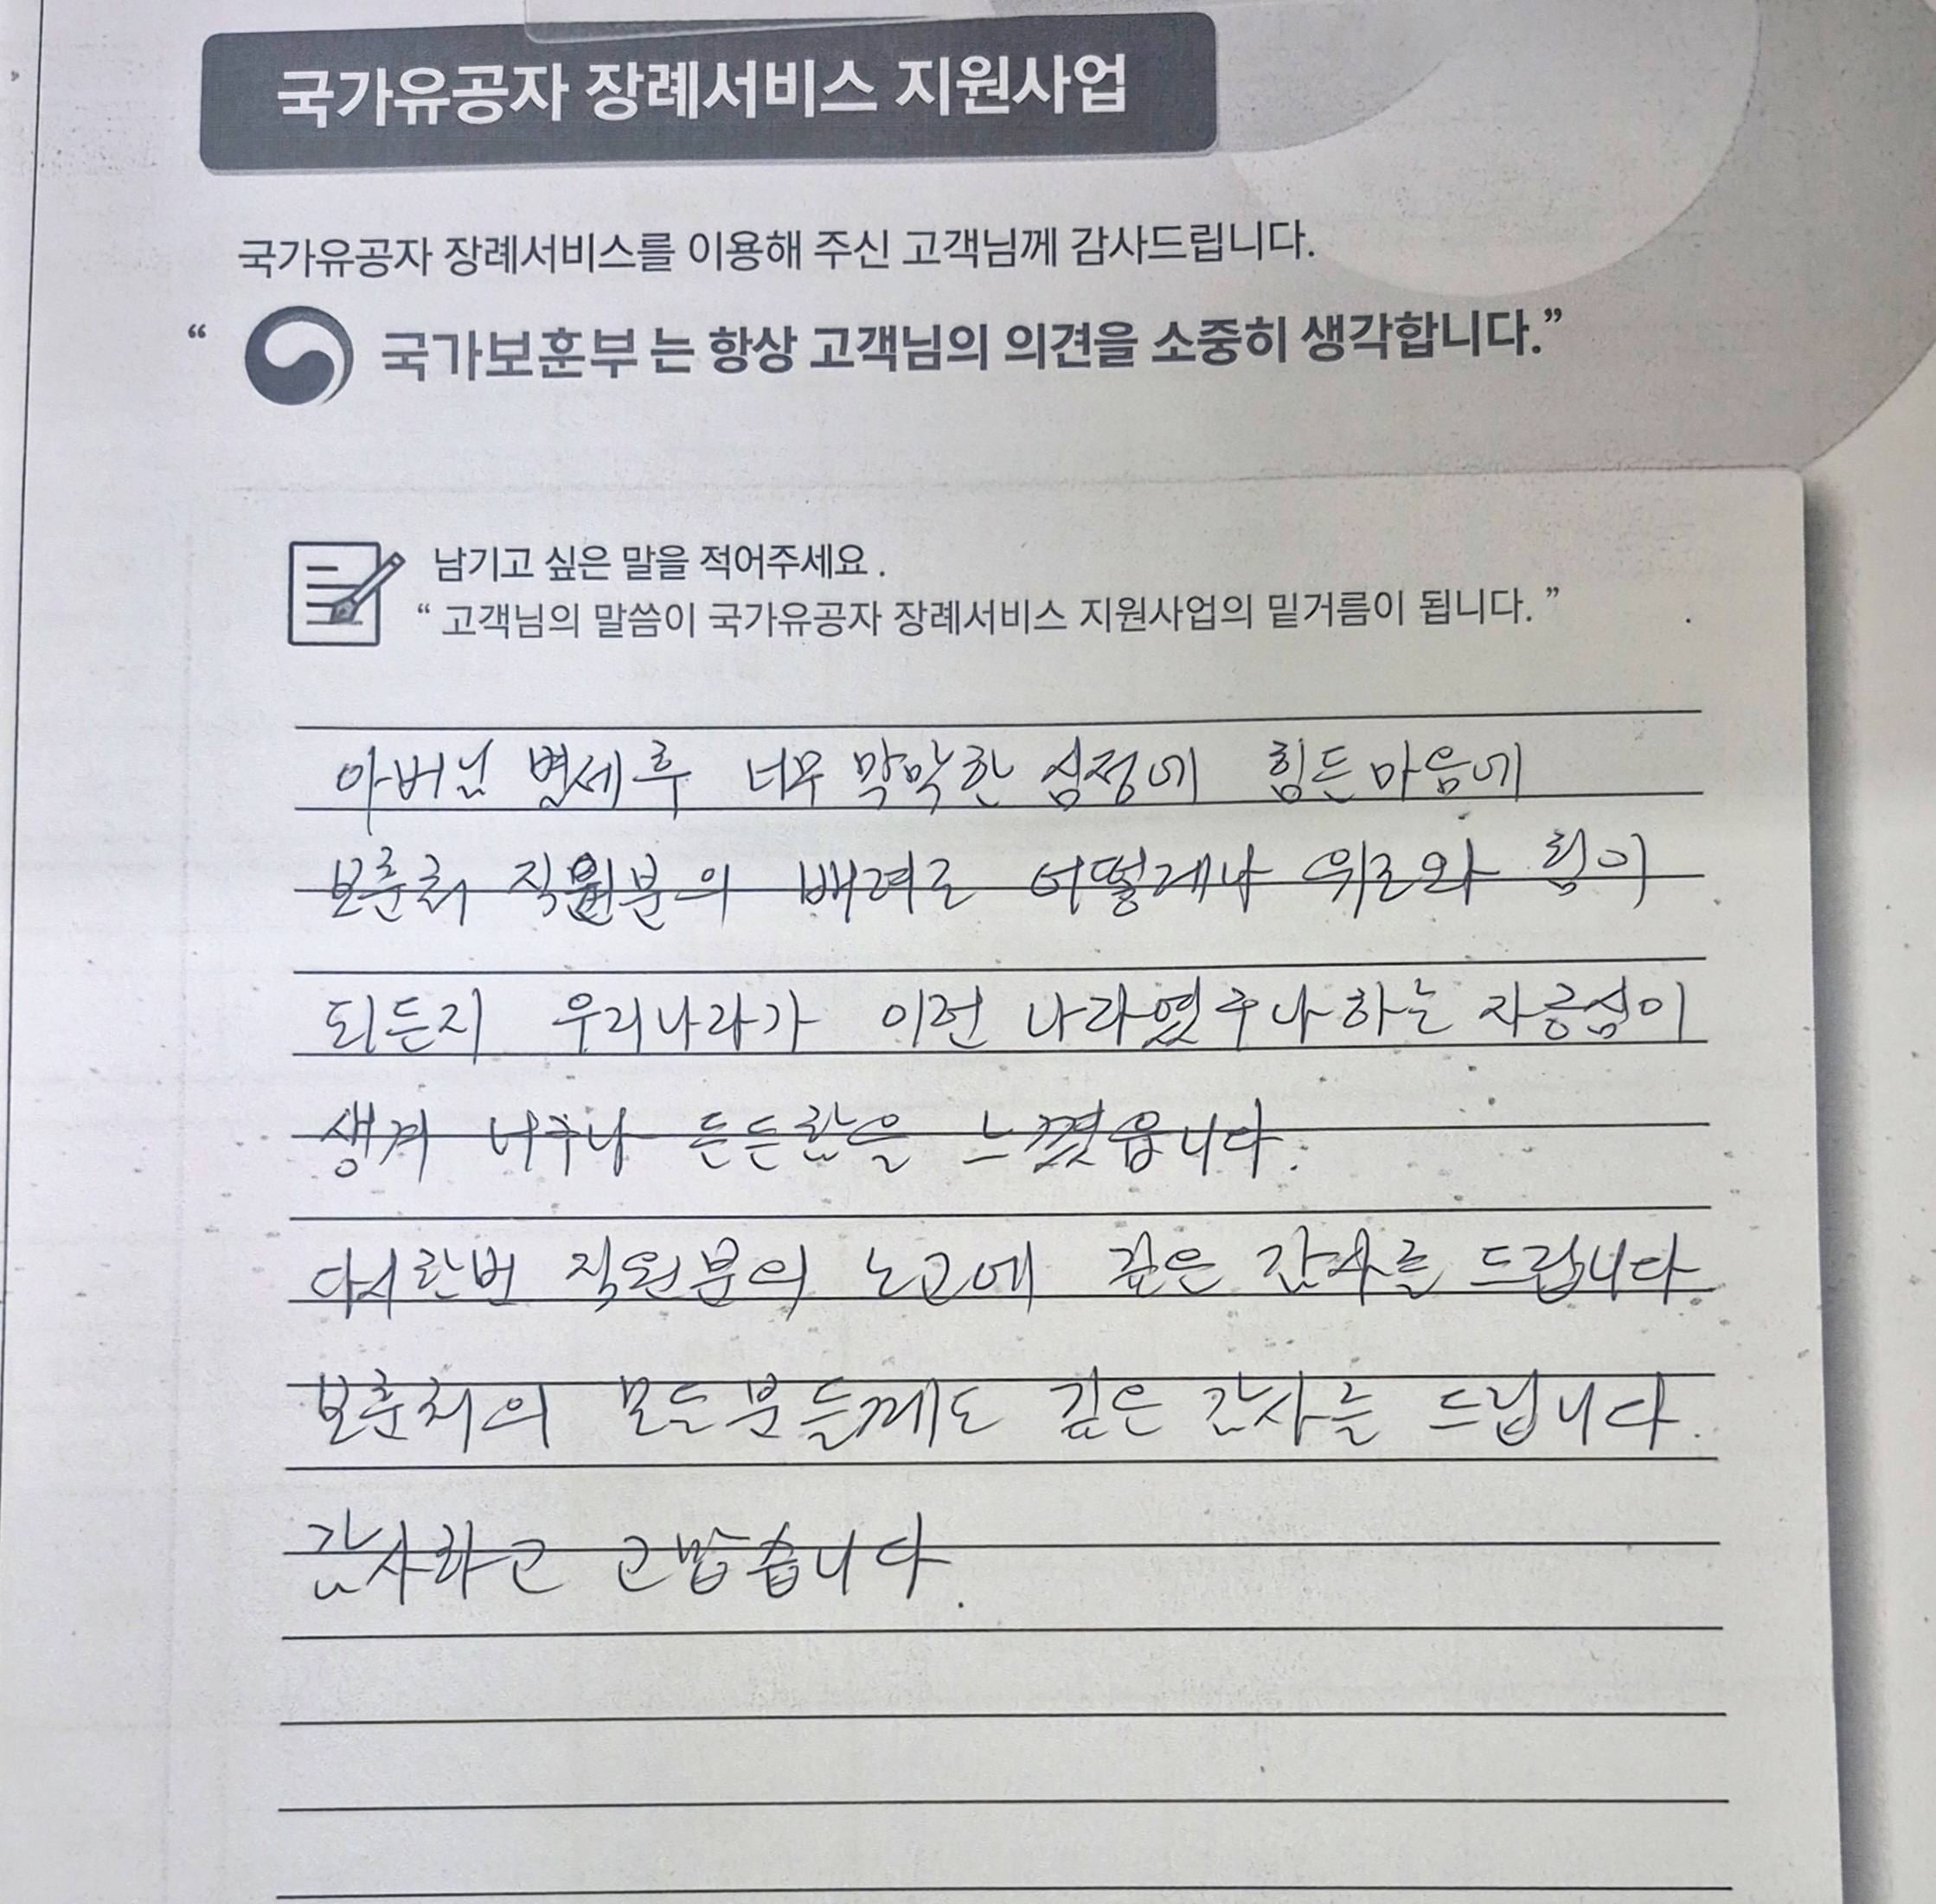 국가유공자 장례서비스 지원사업
국가유공자 장례서비스를 이용해 주신 고객님께 감사드립니다.
“ 국가보훈부 는 항상 고객님의 의견을 소중히 생각합니다.”
남기고 싶은 말을 적어주세요 .
“ 고객님의 말씀이 국가유공자 장례서비스 지원사업의 밑거름이 됩니다. ”
아버님 별세후 너무 막막한 심정에 힘든마음에
보훈처 직원분의 배려로 어떻레나 위로와 힘이
되든지 우리나라가 이런 나라였구나하는 자긍심이
생겨 너무나 든든함을 느꼈읍니다.
다시한번 직원분의 노고에 깊은 감사를 드립니다.
보훈처의 모든분들께도 깊은 감사를 드립니다.
감사하고 고맙습니다.